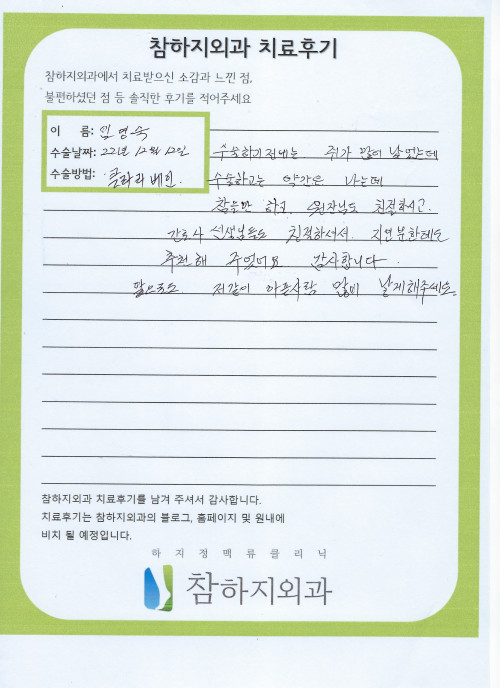 참하지외과 치료후기
참하지외과에서 치료받으신 소감과 느낀 점,
불편하셨던 점 등 솔직한 후기를 적어주세요
이 름: 임영숙
수술날짜: 22년 12월 12일
수술방법: 클라리베인.
수술하기전에는 쥐가 많이 났었는데
수술하고는 약간은 나는데
참을만 하고. 원장님도 친절하시고.
간호사 선생님들도 친절하셔서. 지인분한테도
추천해 주었어요 감사합니다.
앞으로도 저같이 아픈사람 많이 낫게해주세요.
참하지외과 치료후기를 남겨 주셔서 감사합니다.
치료후기는 참하지외과의 블로그, 홈페이지 및 원내에
비치 될 예정입니다.
하지정맥류클리닉
참하지외과